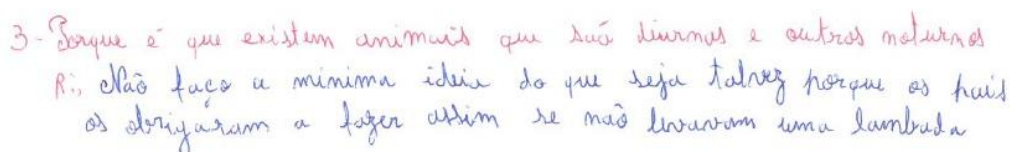 3 - Porque é que existem animais que são diurnos e outros noturnos
R:, Não faço a minima ideia do que seja talvez porque os pais
os obrigaram a fazer assim se não levavam uma lambada